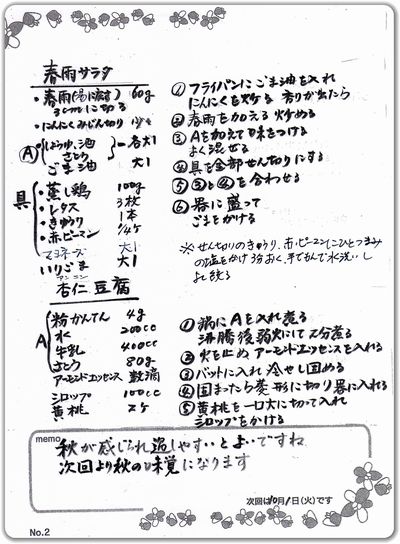 春雨サラダ
・春雨(湯に戻す) 60g
3cmに切る
・にんにくみじん切り 少々
Ⓐ しょうゆ、油
さとう 各大1
ごま油 大1
具
・蒸し鶏 100g
・レタス 3枚
・きゅうり 1本
・赤ピーマン 1/4ケ
マヨネーズ 大1
いりごま 大1
① フライパンにごま油を入れ
にんにくを炒る 香りが出たら
② 春雨を加える 炒める
③ Aを加えて味をつける
よく混ぜる
④ 具を全部せん切りにする
⑤ ③と④を合わせる
⑥ 器に盛って
ごまをかける
※せん切りのきゅうり、赤ピーマンにひとつまみ
の塩をかけ3分おく、手でもんで水洗いし
よく絞る
アンニン
杏仁豆腐
A
粉かんてん 4g
水 200cc
牛乳 400cc
さとう 80g
アーモンドエッセンス 数滴
シロップ 100cc
黄桃 2ケ
① 鍋にAを入れ煮る
沸騰後弱火にして2分煮る
② 火を止め アーモンドエッセンスを入れる
③ バットに入れ冷やし固める
④ 固まったら菱形に切り器に入れる
⑤ 黄桃を一口大に切って入れ
シロップをかける
memo
秋が感じられ過しやすいとよいですね
次回より秋の味覚になります
次回は10月1日(火)です
No.2